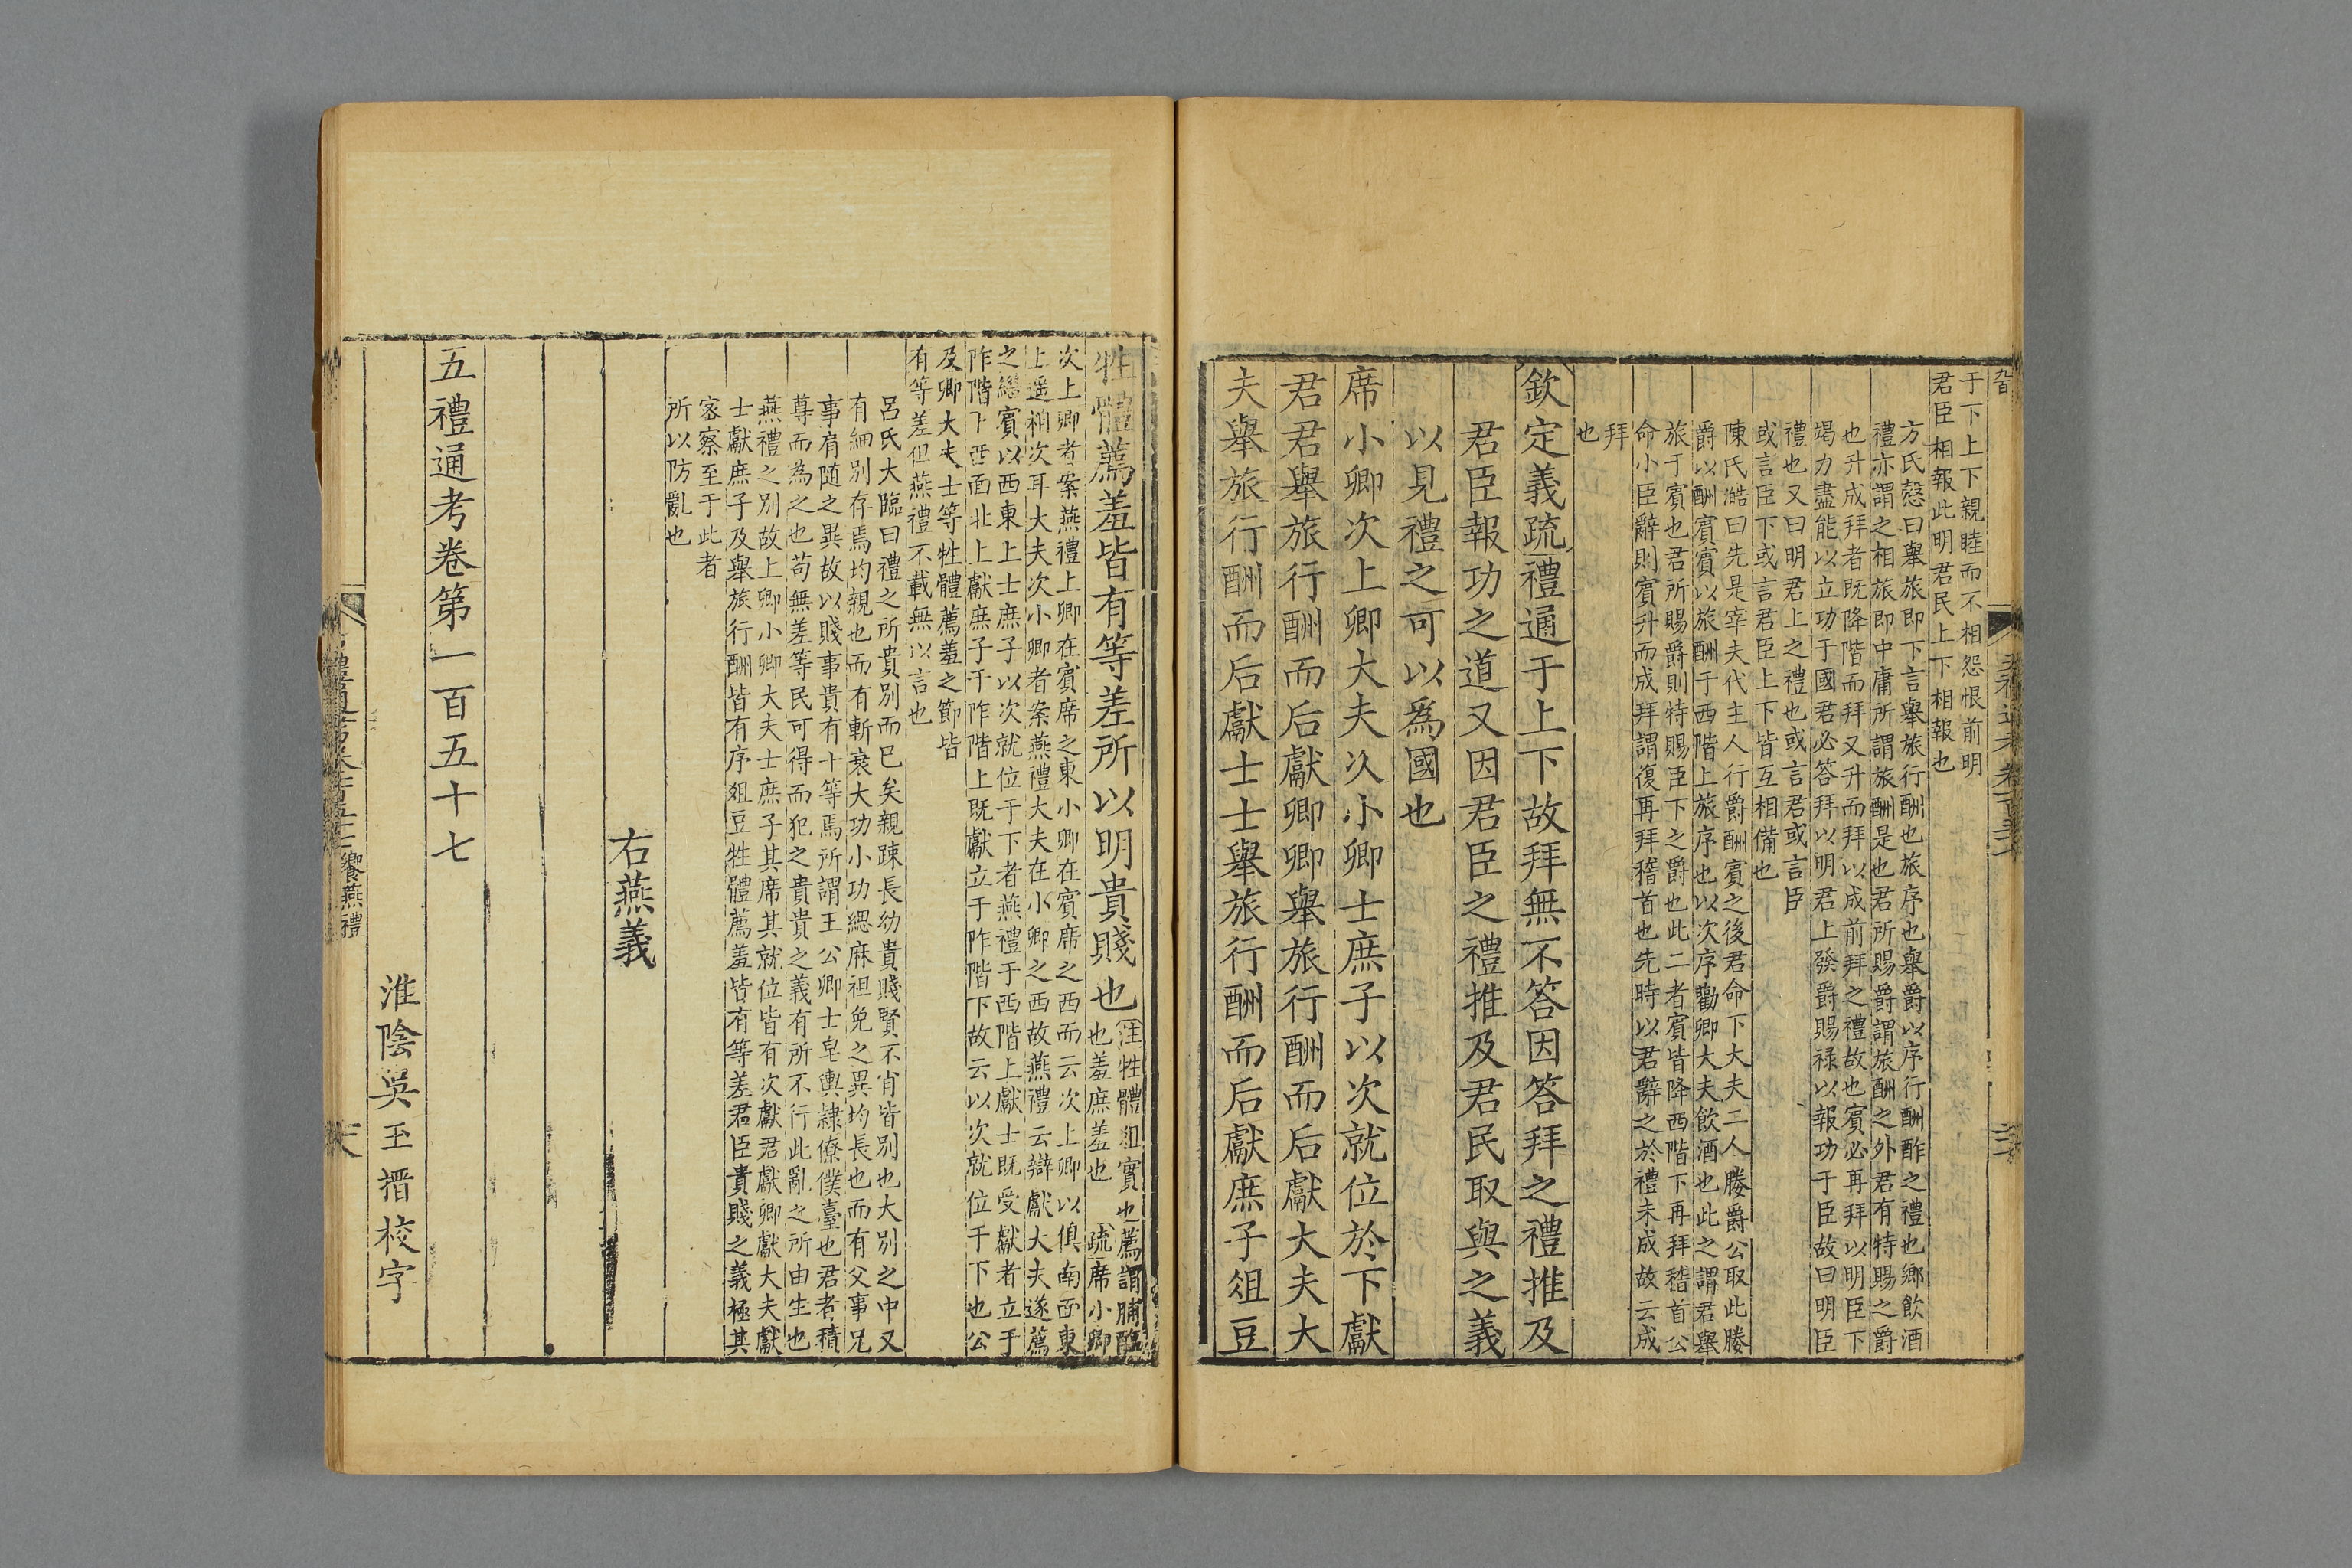 于下上下親睦而不相怨恨前明
君臣相報此明君民上下相報也
方氏慤曰舉旅即下言舉旅行酬也旅序也舉爵以序行酬酢之禮也鄉飲酒
禮亦謂之相旅即中庸所謂旅酬是也君所賜爵謂旅酬之外君有特賜之爵
也升成拜者既降階而拜又升而拜以成前拜之禮故也賓必再拜以明臣下
竭力盡能以立功于國君必答拜以明君上發爵賜祿以報功于臣故曰明臣
禮也又曰明君上之禮也或言君或言臣
或言臣下或言君臣上下皆互相備也
陳氏澔曰先是宰夫代主人行爵酬賓之後君命下大夫二人媵爵公取此媵
爵以酬賓賓以旅酬于西階上旅序也以次序勸卿大夫飲酒也此之謂君舉
旅于賓也君所賜爵則特賜臣下之爵也此二者賓皆降西階下再拜稽首公
命小臣辭則賓升而成拜謂復再拜稽首也先時以君辭之於禮未成故云成
拜
也
欽定義疏禮通于上下故拜無不答因答拜之禮推及
君臣報功之道又因君臣之禮推及君民取與之義
以見禮之可以為國也
席小卿次上卿大夫次小卿士庶子以次就位於下獻
君君舉旅行酬而后獻卿卿舉旅行酬而后獻大夫大
夫舉旅行酬而后獻士士舉旅行酬而后獻庶子俎豆
牲體薦羞皆有等差所以明貴賤也
注牲體俎實也薦謂脯醢
也羞庶羞也 疏席小卿
次上卿者案燕禮上卿在賓席之東小卿在賓席之西而云次上卿以俱南面東
上遥相次耳大夫次小卿者案燕禮大夫在小卿之西故燕禮云辯獻大夫遂薦
之繼賓以西東上士庶子以次就位于下者燕禮于西階上獻士既受獻者立于
阼階下西面北上獻庶子于阼階上既獻立于阼階下故云以次就位于下也公
及卿大夫士等牲體薦羞之節皆
有等差但燕禮不載無以言也
呂氏大臨曰禮之所貴別而已矣親踈長幼貴賤賢不肖皆別也大別之中又
有細別存焉均親也而有斬衰大功小功緦麻袒免之異均長也而有父事兄
事肩随之異故以賤事貴有十等焉所謂王公卿士皂輿隸僚僕臺也君者積
尊而為之也苟無差等民可得而犯之貴貴之義有所不行此亂之所由生也
燕禮之別故上卿小卿大夫士庶子其席其就位皆有次獻君獻卿獻大夫獻
士獻庶子及舉旅行酬皆有序俎豆牲體薦羞皆有等差君臣貴賤之義極其
宻察至于此者
所以防亂也
右燕義
五禮通考卷第一百五十七
淮陰吳玉搢校字
饗燕禮